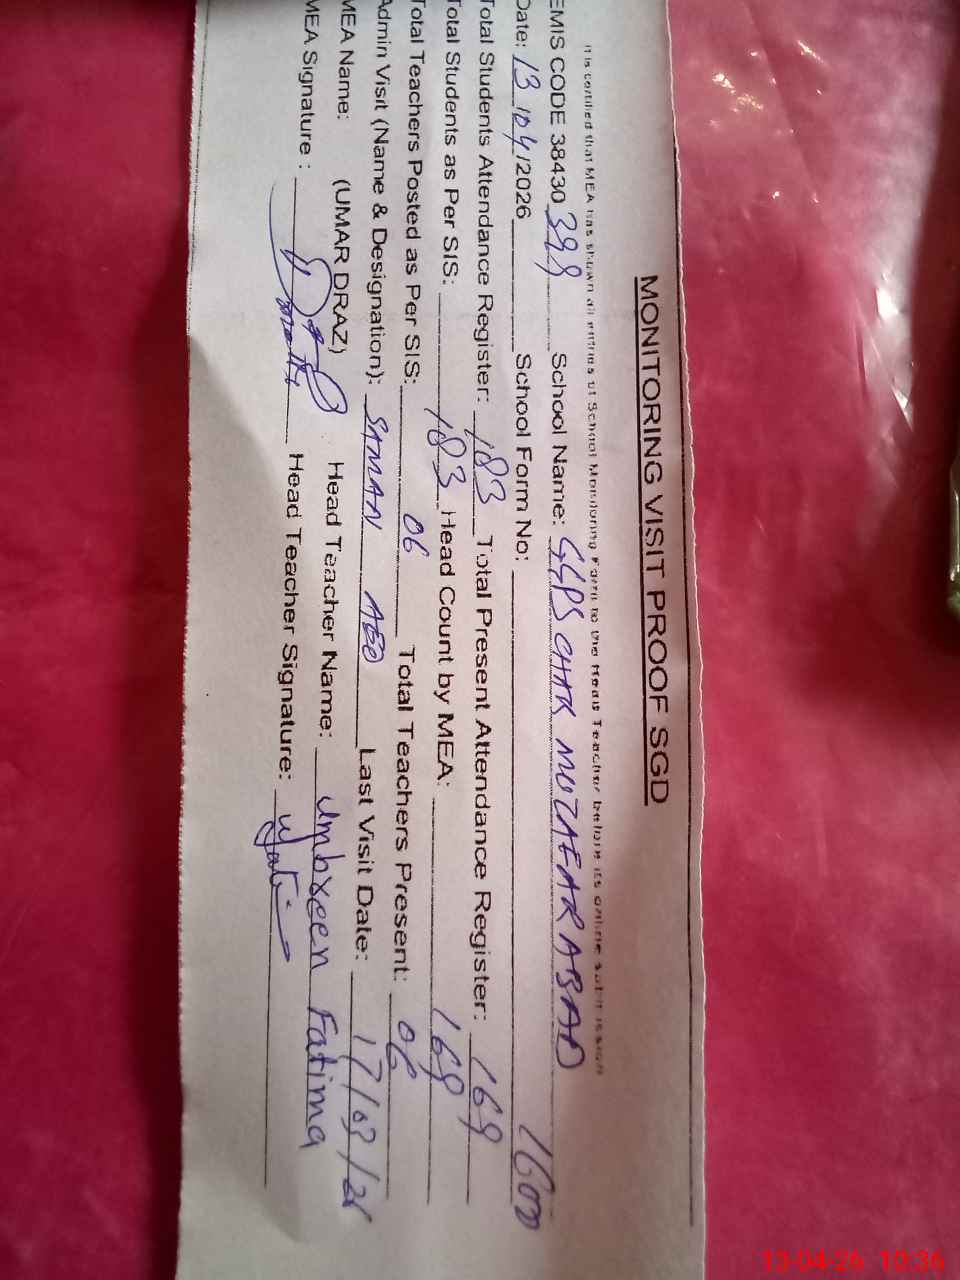 MONITORING VISIT PROOF SGD
It is certified that MEA has shown all entries of School Monitoring Form to the Head Teacher before its online submission
EMIS CODE 38430 399 School Name: GGPS CHAK MUZAFAR ABAD
Date: 13/04/2026 School Form No: 1600
Total Students Attendance Register: 183 Total Present Attendance Register: 169
Total Students as Per SIS: 183 Head Count by MEA: 169
Total Teachers Posted as Per SIS: 06 Total Teachers Present: 06
Admin Visit (Name & Designation): SAMAN AEO Last Visit Date: 17/03/26
MEA Name: (UMAR DRAZ) Head Teacher Name: Umbreen Fatima
MEA Signature : Head Teacher Signature:
13-04-26 10:36